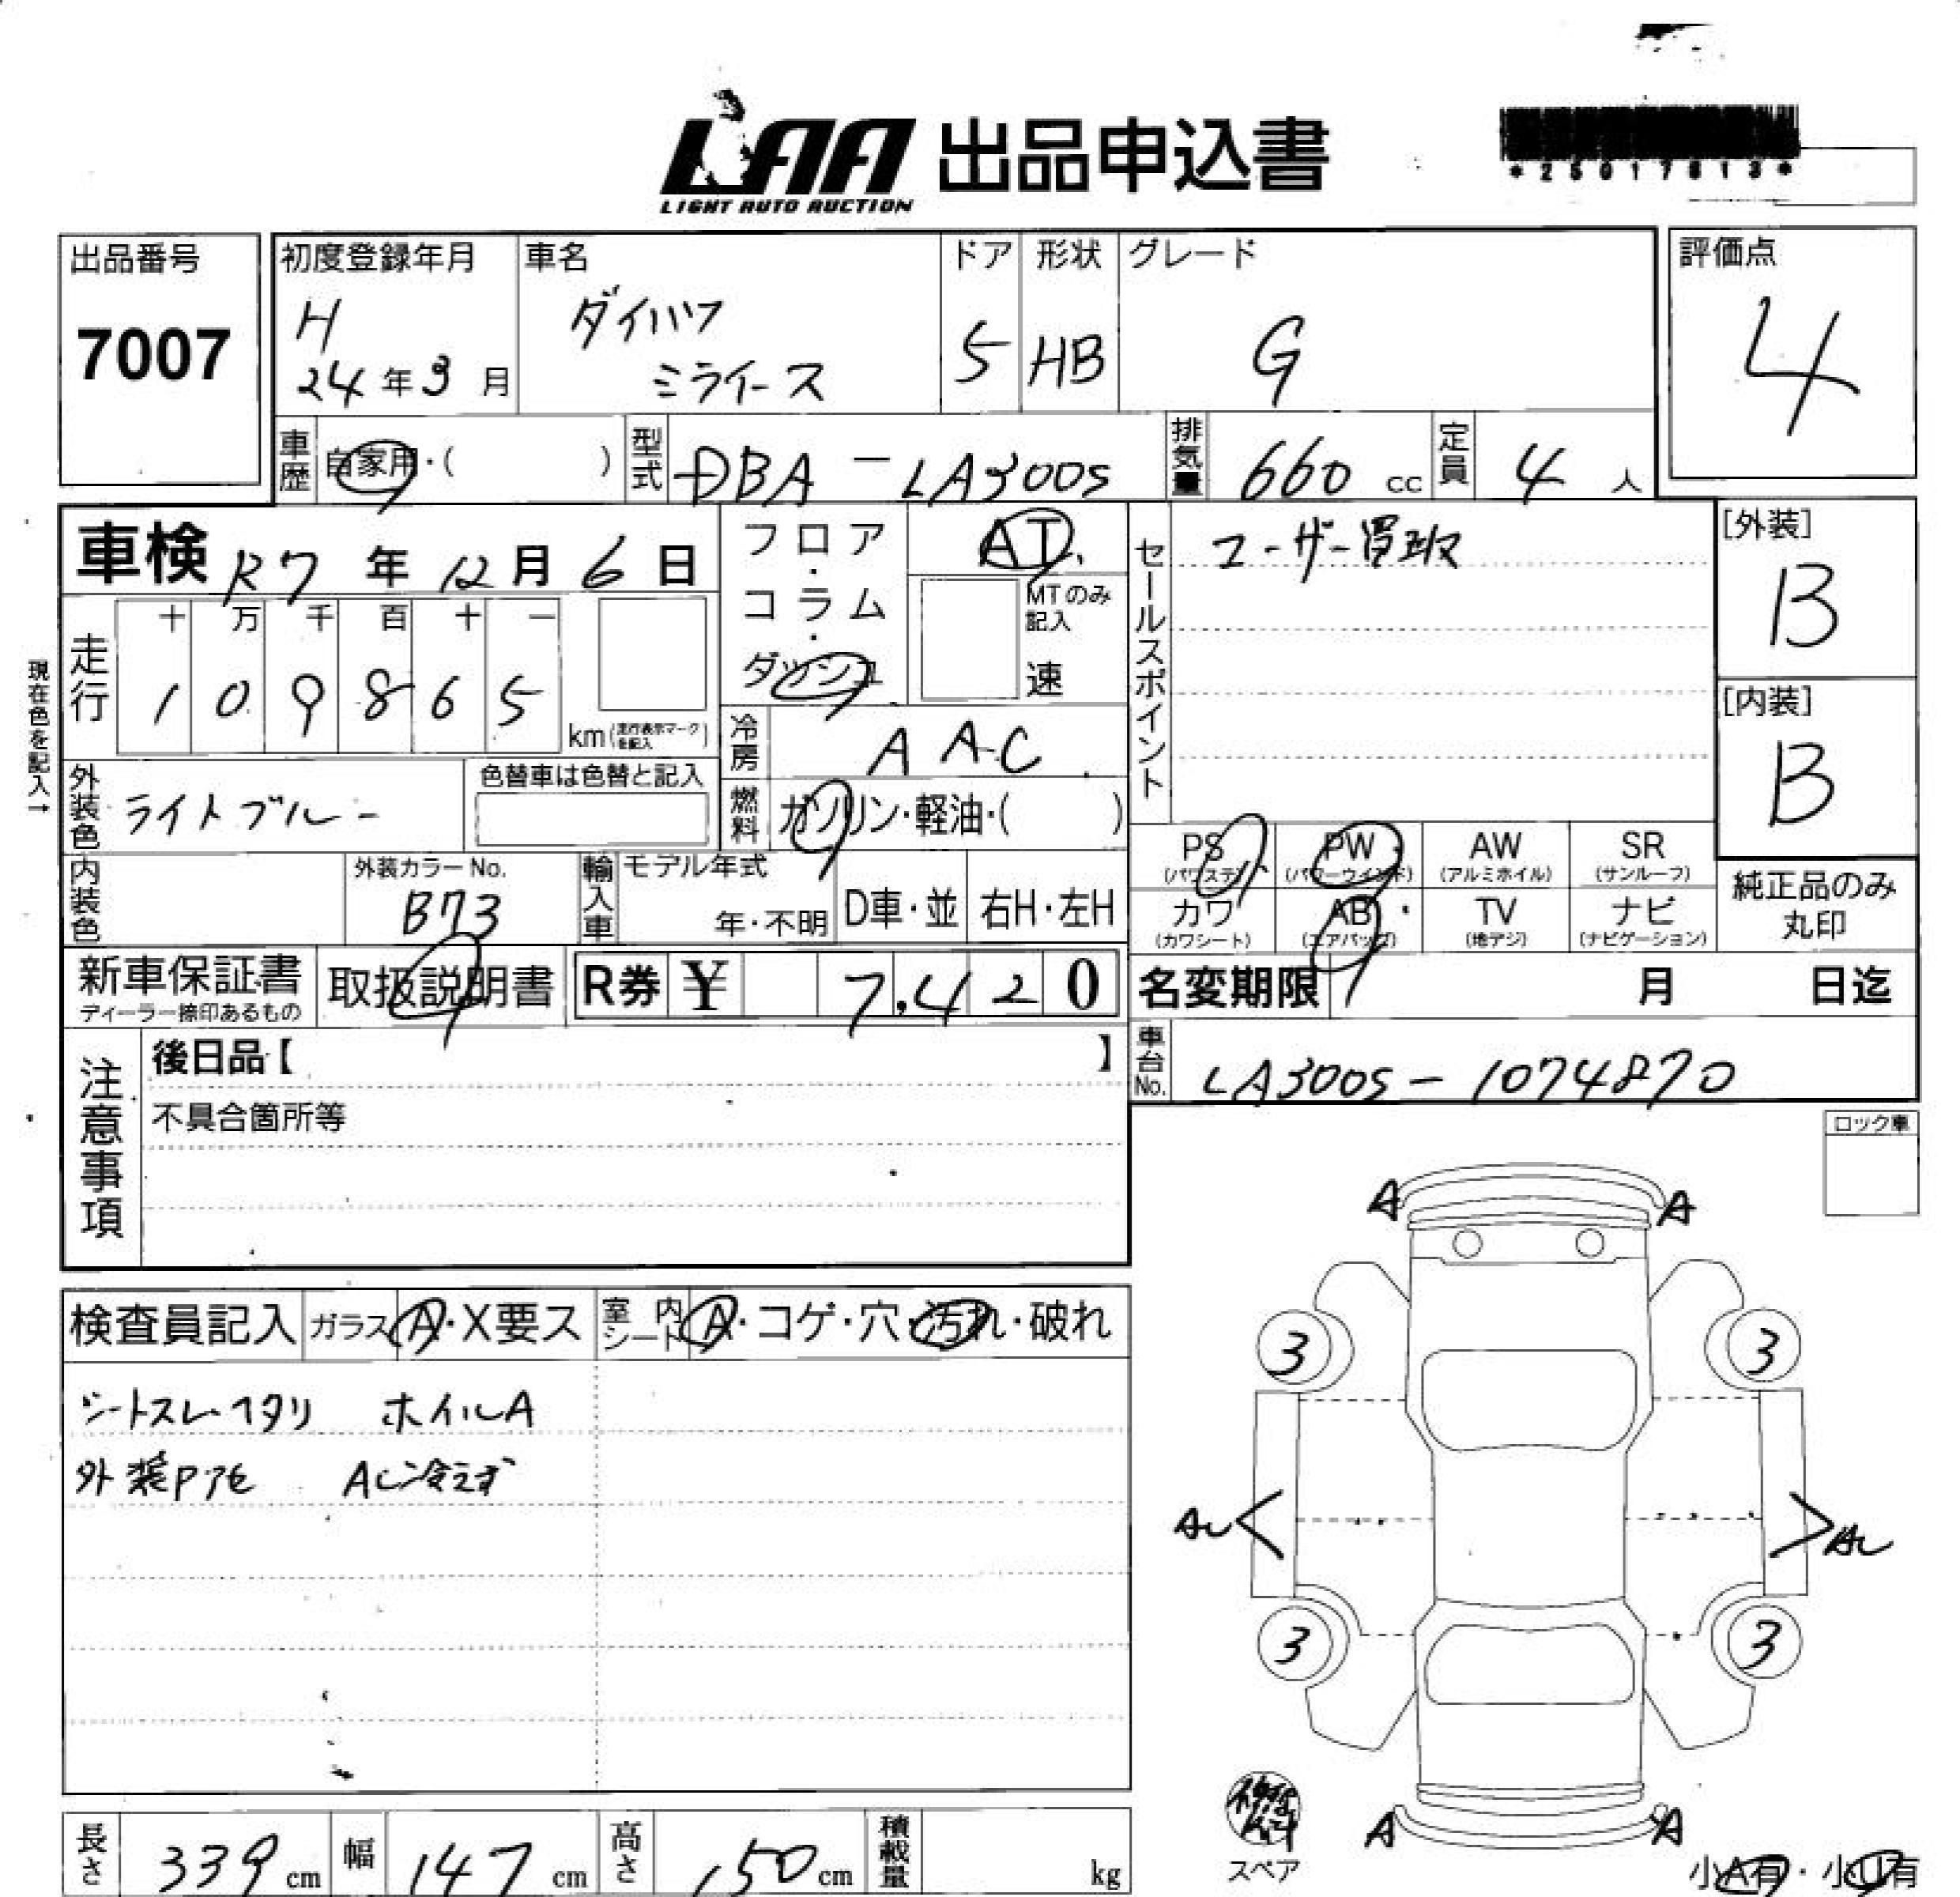 LAA 出品申込書
LIGHT AUTO AUCTION
*25017813*
出品番号
7007
初度登録年月
H
24年3月
車名
ダイハツ
ミライース
ドア
5
形状
HB
グレード
G
評価点
4
車歴
自家用・( )
型式
DBA-LA300S
排気量
660 cc
定員
4 人
車検 R7年12月6日
フロア・コラム・ダッシュ
AT
MTのみ記入
速
セールスポイント
ユーザー買取
[外装]
B
[内装]
B
現在色を記入→
走行
十 万 千 百 十 一
1 0 9 8 6 5
km(走行表示マークを記入)
冷房
AAC
外装色
ライトブルー
色替車は色替と記入
燃料
ガソリン・軽油・( )
PS
(パワステ)
PW
(パワーウインド)
AW
(アルミホイル)
SR
(サンルーフ)
カワ
(カワシート)
AB
(エアバッグ)
TV
(地デジ)
ナビ
(ナビゲーション)
純正品のみ
丸印
内装色
外装カラーNo.
B73
輸入車
モデル年式
年・不明
D車・並
右H・左H
新車保証書
ディーラー捺印あるもの
取扱説明書
R券 ¥ 7,420
名変期限 月 日迄
注意事項
後日品【 】
不具合箇所等
車台No.
LA300S-1074870
ロック車
検査員記入
ガラス
A・X要ス
室内シート
A・コゲ・穴・汚れ・破れ
シートスレヘタリ ホイルA
外装P7E AC冷えず
A A
3 3
AU AU
3 3
A A
スペア
小A有・小U有
長さ
339 cm
幅
147 cm
高さ
150 cm
積載量
kg